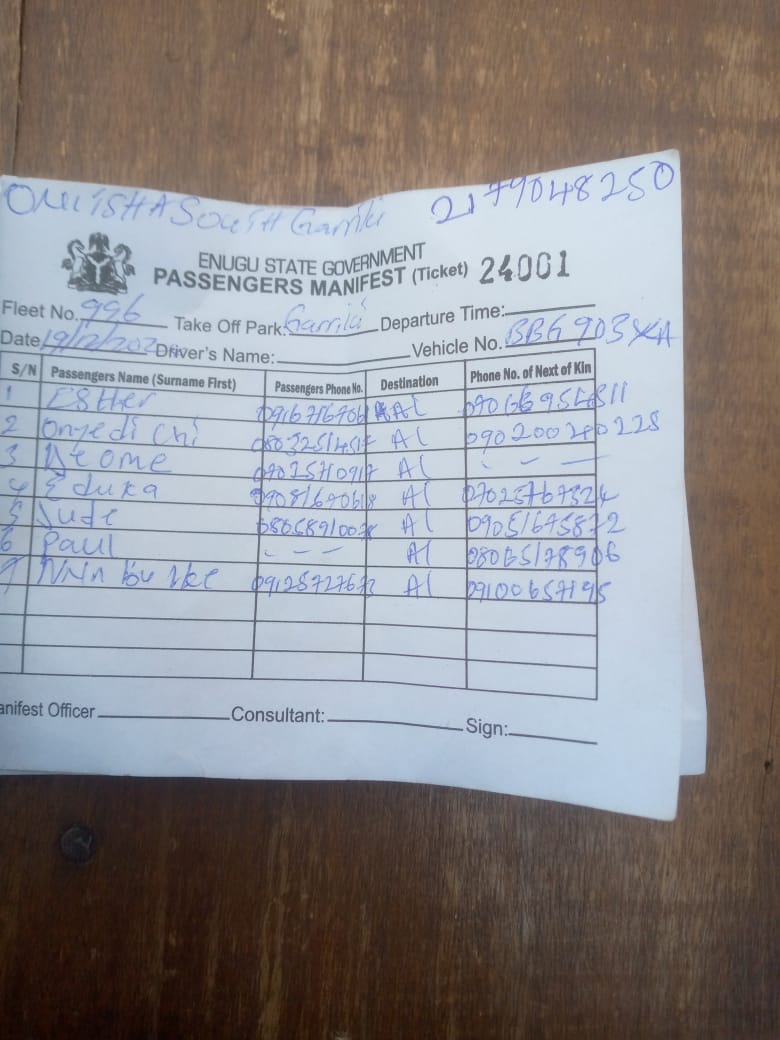 ONITSHA SOUTH Garriki 2179048250
ENUGU STATE GOVERNMENT
PASSENGERS MANIFEST (Ticket) 24001
Fleet No. 996 Take Off Park: Garriki Departure Time:
Date 19/12/202 Driver's Name: Vehicle No. BBG 903 XA
S/N Passengers Name (Surname First) Passengers Phone No. Destination Phone No. of Next of Kin
1 Esther Al
2 Onyedi Chi Al 090200240228
3 Al - - -
4 Eduka Al 07025767324
5 Jude Al 09051675872
6 Paul - - - Al 08065178906
7 Al 09100657195
anifest Officer Consultant: Sign: